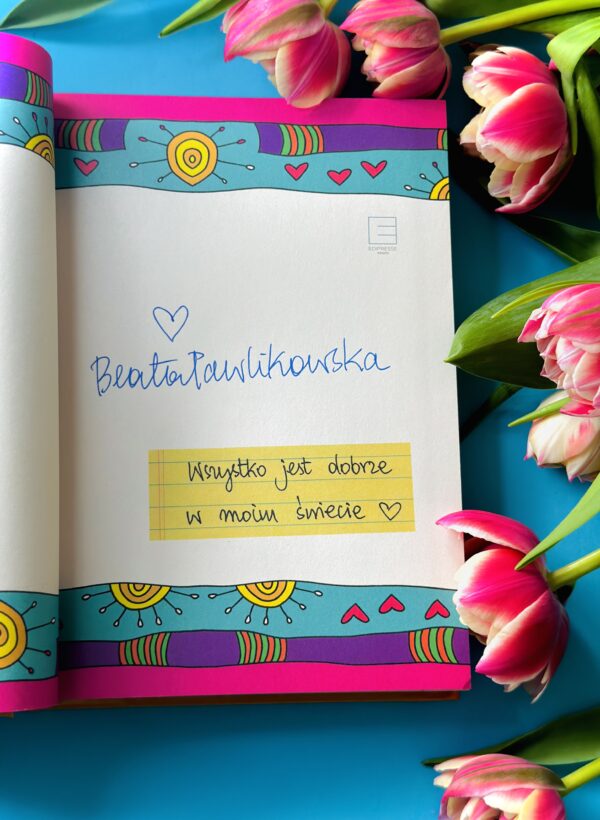 EDIPRESSE
Beata Pawlikowska
Wszystko jest dobrze
w moim świecie